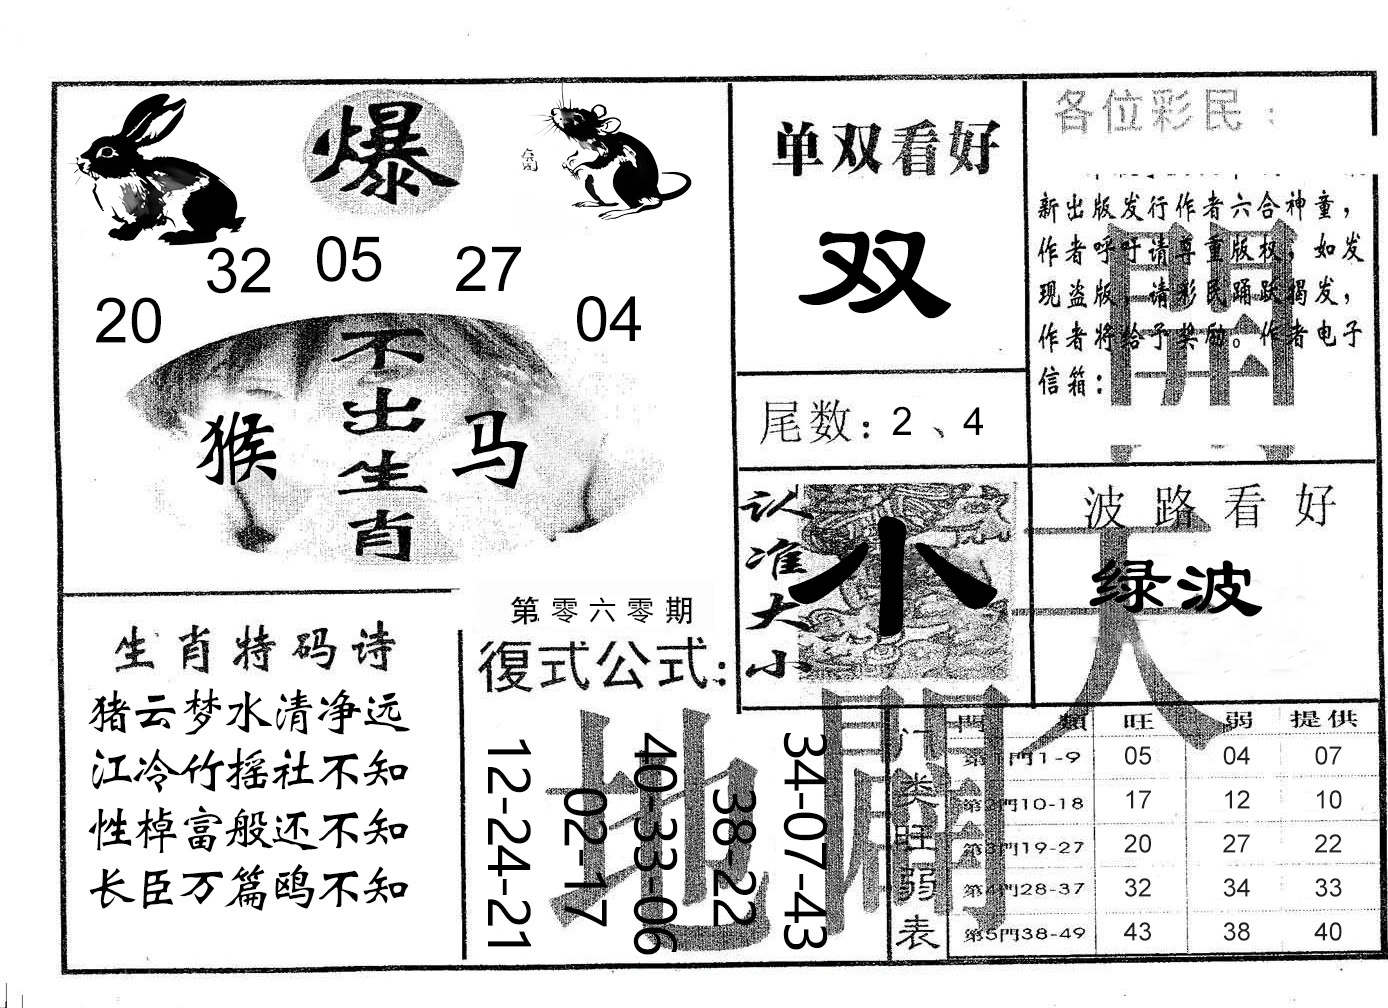 爆
32 05 27
20 04
不出生肖
猴 马
单双看好
双
尾数：2、4
各位彩民：
新出版发行作者六合神童，
作者呼吁请尊重版权，如发
现盗版，请彩民踊跃揭发，
作者将给予奖励。作者电子
信箱：
認准大小
小
波路看好
绿波
開
天
生肖特码诗
猪云梦水清净远
江冷竹摇社不知
性棹富般还不知
长臣万篇鸥不知
第零六零期
復式公式：
12-24-21
02-17
40-33-06
38-22
34-07-43
地
門类旺弱表
門類 旺 弱 提供
第1門1-9 05 04 07
第2門10-18 17 12 10
第3門19-27 20 27 22
第4門28-37 32 34 33
第5門38-49 43 38 40